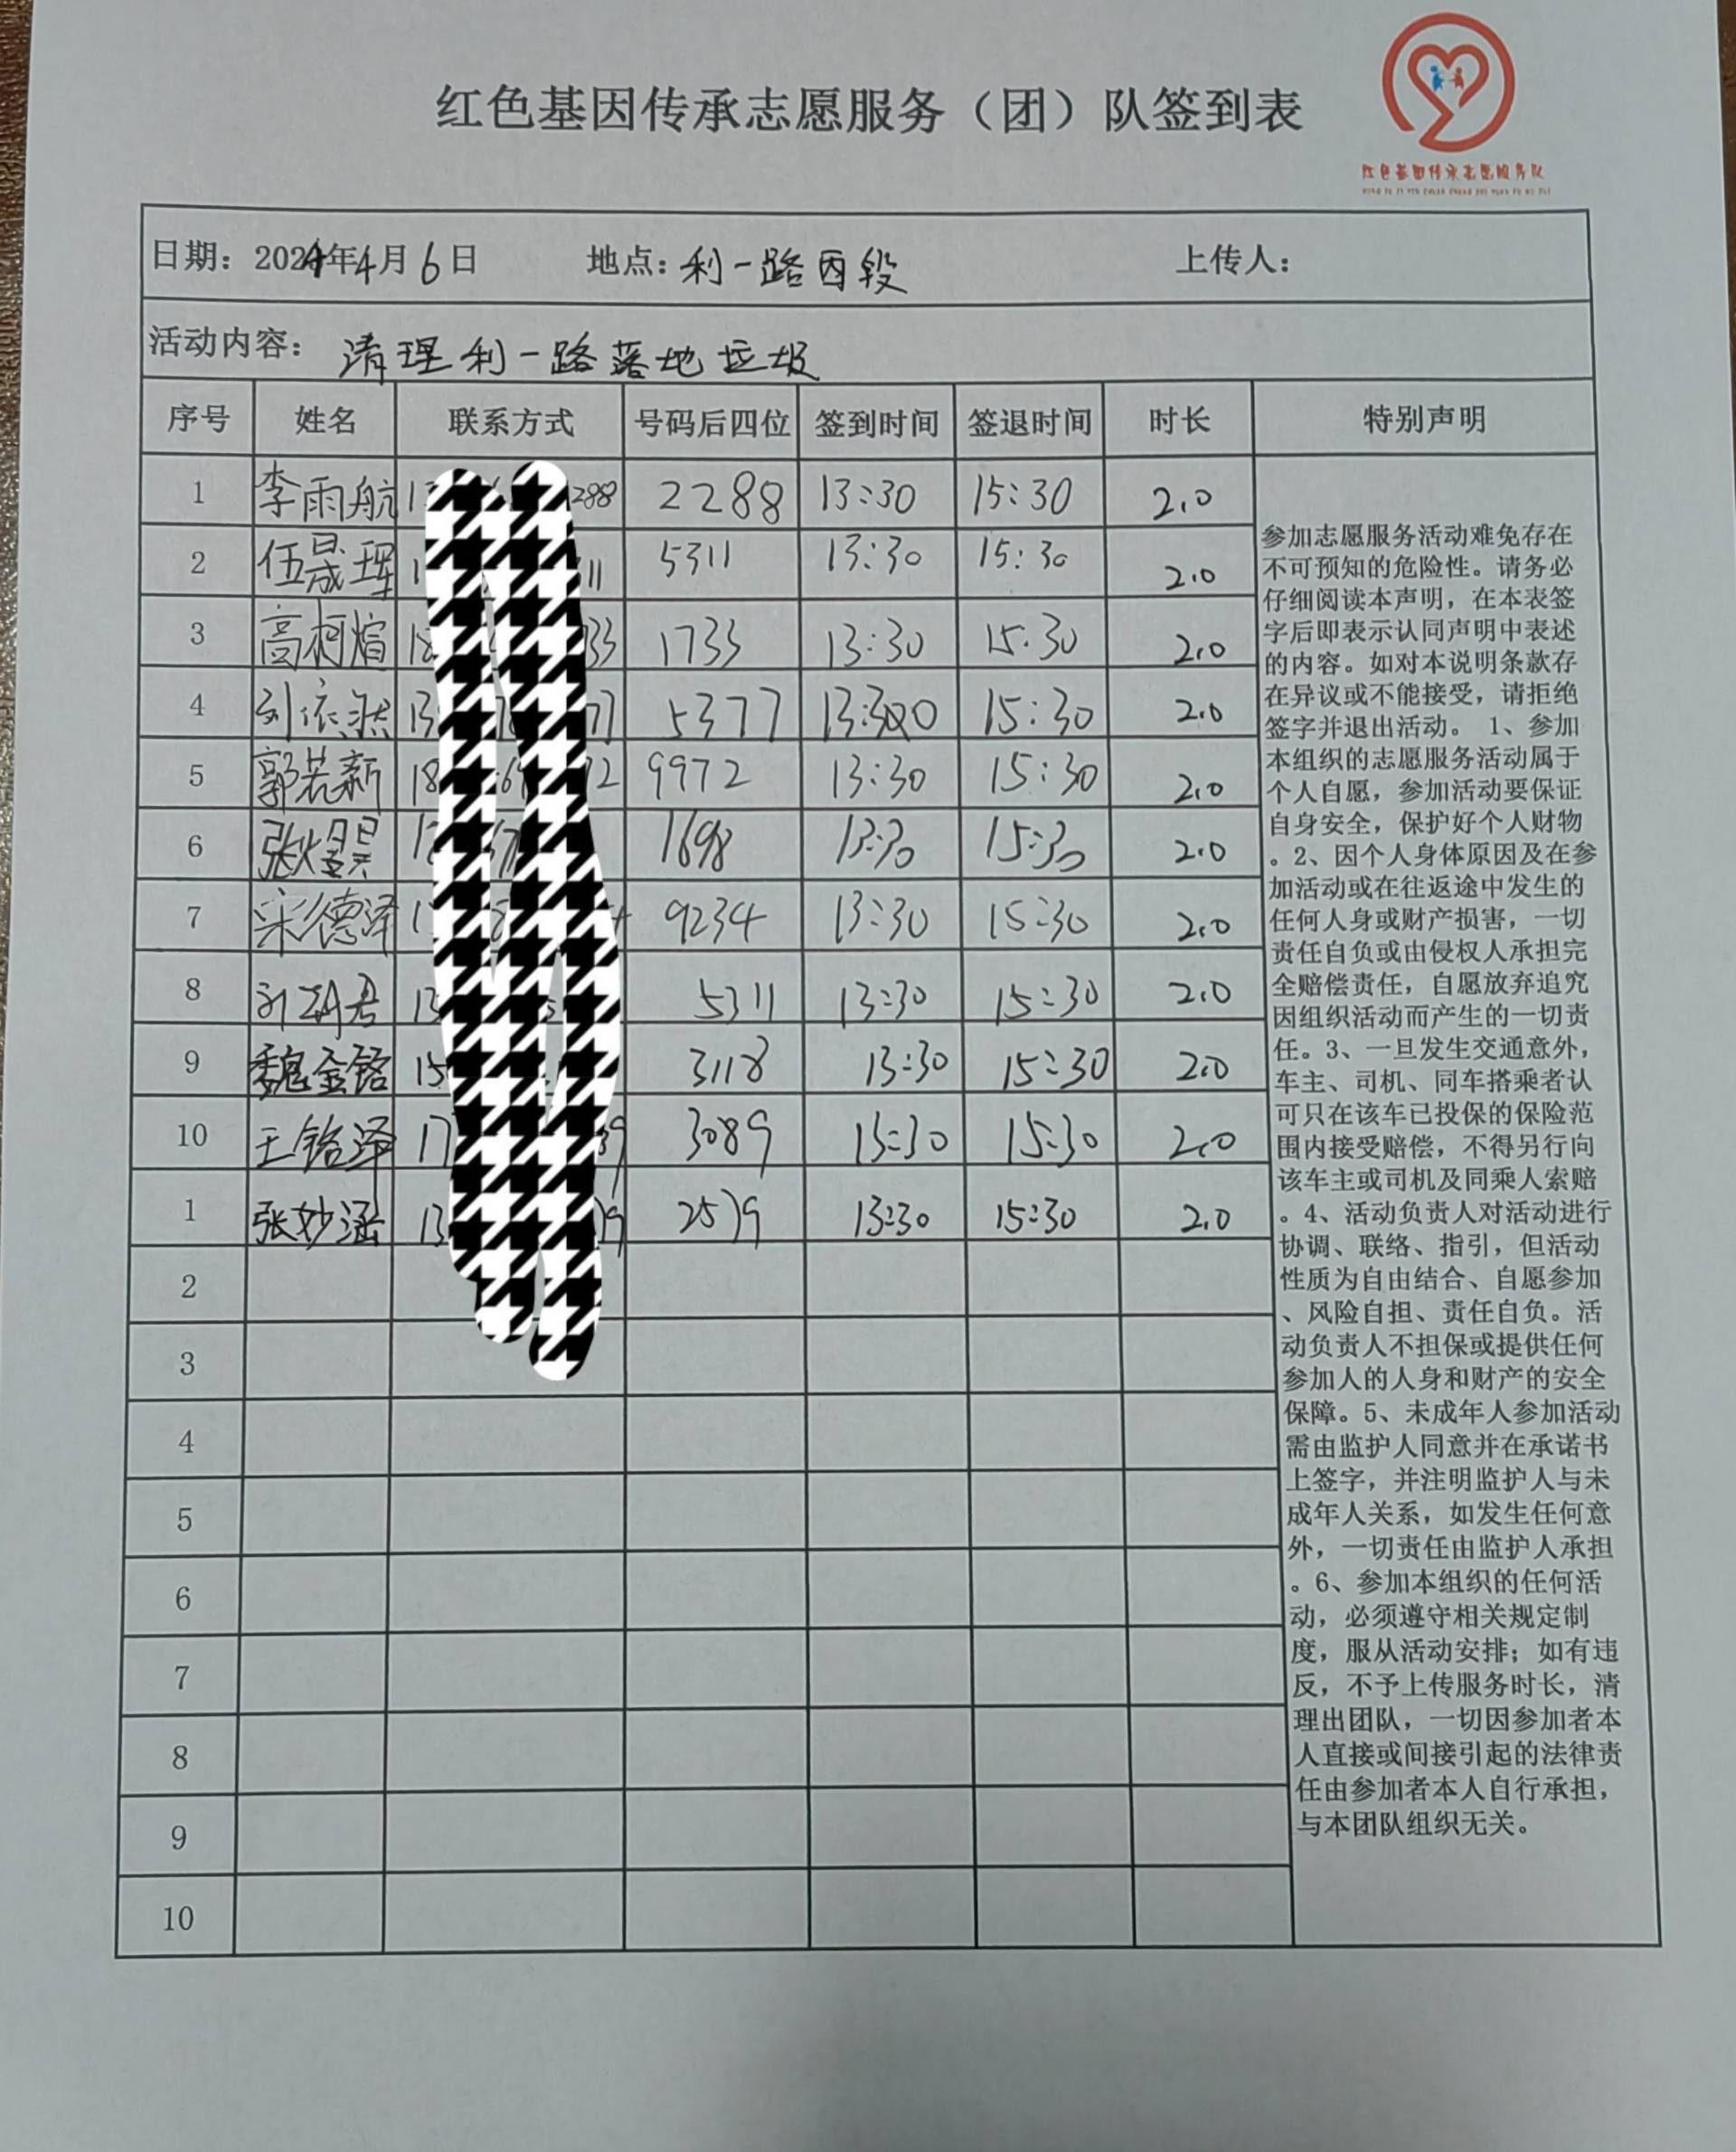 红色基因传承志愿服务（团）队签到表
红色基因传承志愿服务队
日期：2024年4月6日 地点：利一路西段 上传人：
活动内容：清理利一路落地垃圾
序号 姓名 联系方式 号码后四位 签到时间 签退时间 时长 特别声明
1 李雨航 2288 13:30 15:30 2.0
2 伍晟珲 5311 13:30 15:30 2.0
3 高柯煊 1733 13:30 15:30 2.0
4 刘依然 5377 13:30 15:30 2.0
5 郭若新 9972 13:30 15:30 2.0
6 张煜昊 1698 13:30 15:30 2.0
7 宋德泽 9234 13:30 15:30 2.0
8 5311 13:30 15:30 2.0
9 魏金铭 3118 13:30 15:30 2.0
10 王铭泽 3089 13:30 15:30 2.0
1 张妙涵 2579 13:30 15:30 2.0
2
3
4
5
6
7
8
9
10
参加志愿服务活动难免存在
不可预知的危险性。请务必
仔细阅读本声明，在本表签
字后即表示认同声明中表述
的内容。如对本说明条款存
在异议或不能接受，请拒绝
签字并退出活动。1、参加
本组织的志愿服务活动属于
个人自愿，参加活动要保证
自身安全，保护好个人财物
。2、因个人身体原因及在参
加活动或在往返途中发生的
任何人身或财产损害，一切
责任自负或由侵权人承担完
全赔偿责任，自愿放弃追究
因组织活动而产生的一切责
任。3、一旦发生交通意外，
车主、司机、同车搭乘者认
可只在该车已投保的保险范
围内接受赔偿，不得另行向
该车主或司机及同乘人索赔
。4、活动负责人对活动进行
协调、联络、指引，但活动
性质为自由结合、自愿参加
、风险自担、责任自负。活
动负责人不担保或提供任何
参加人的人身和财产的安全
保障。5、未成年人参加活动
需由监护人同意并在承诺书
上签字，并注明监护人与未
成年人关系，如发生任何意
外，一切责任由监护人承担
。6、参加本组织的任何活
动，必须遵守相关规定制
度，服从活动安排；如有违
反，不予上传服务时长，清
理出团队，一切因参加者本
人直接或间接引起的法律责
任由参加者本人自行承担，
与本团队组织无关。